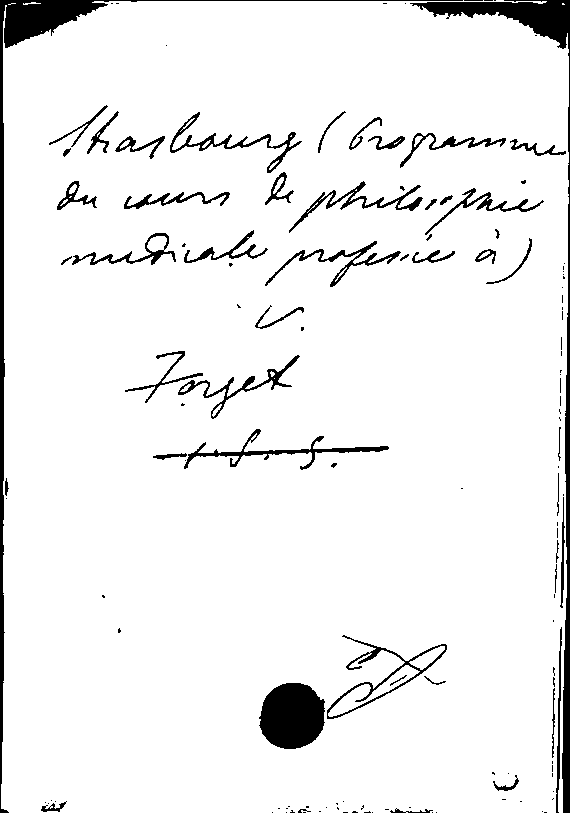 Strasbourg (Programme
du cours de philosophie
médicale professé à)
v.
Forget